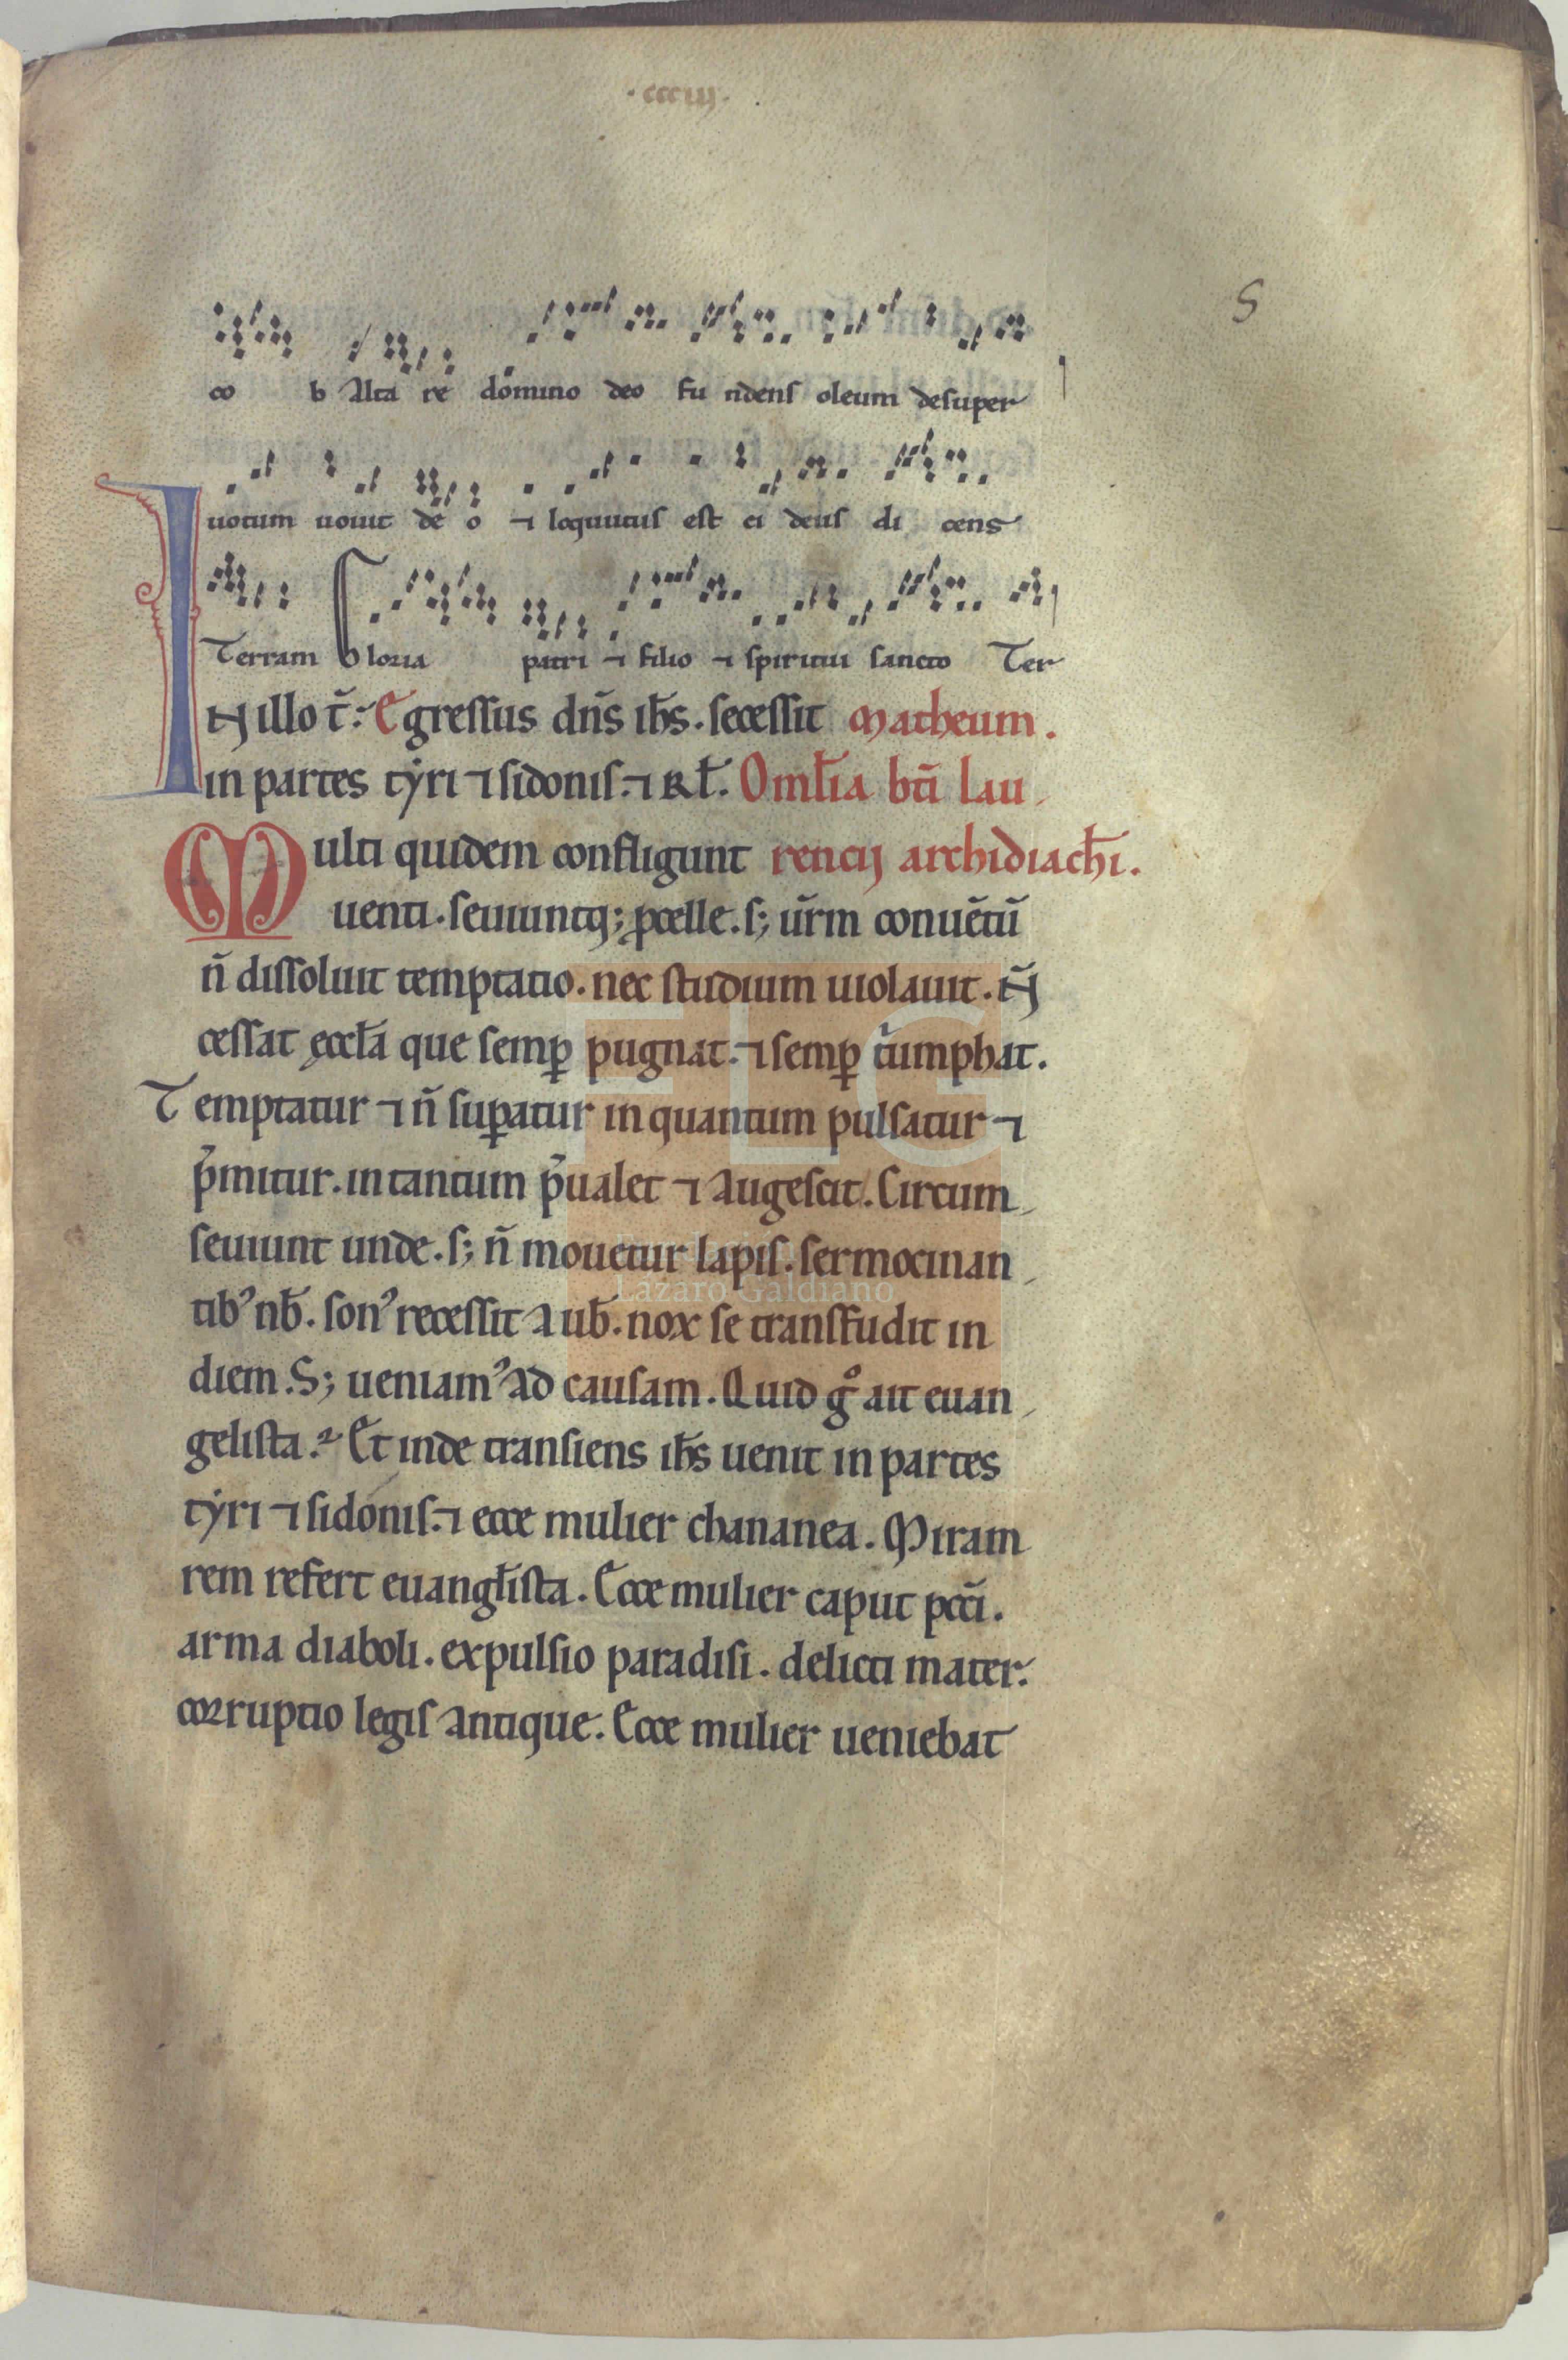 ·ccciij·
S
co b alta re domino deo fu ndens oleum desuper
uotum uouit de o ⁊ loquutus est ei deus di cens
Terram Gloria patri ⁊ filio ⁊ spiritui sancto Ter
IN illo t̄. Egressus dn̄s ih̄s. secessit Matheum.
in partes tẏri ⁊ sidonis. ⁊ rł. Omłia bt̄i lau
Multi quidem confligunt rencij archidiach̄i.
uenti. seuiuntq; ꝓcelle. s; ur̄m conuētū
n̄ dissoluit temptatio. nec studium uiolauit. N̄
cessat ęccłā que semꝑ pugnat. ⁊ semꝑ tͥumphat.
Temptatur ⁊ n̄ suꝑatur in quantum pulsatur ⁊
p̄mitur. in tantum p̄ualet ⁊ augescit. Circum
seuiunt unde. s; n̄ mouetur lapis. sermocinan
tibꝰ nob̄. sonꝰ recessit a ub̄. nox se transfudit in
diem. S; ueniamꝰ ad causam. Quid gͦ ait euan
gelista. Et inde transiens ih̄s uenit in partes
tẏri ⁊ sidonis. ⁊ ecce mulier chananea. Miram
rem refert euangłista. Ecce mulier caput pcc̄i.
arma diaboli. expulsio paradisi. delicti mater.
corruptio legis antique. Ecce mulier ueniebat
FLG
Lázaro Galdiano